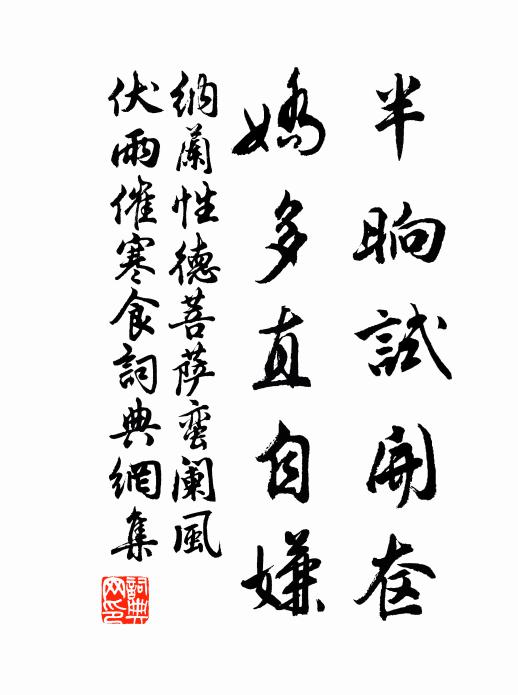 半晌試開奩
嬌多直自嫌
納蘭性德菩薩蠻闌風
伏雨催寒食詞典網集
詞典網印